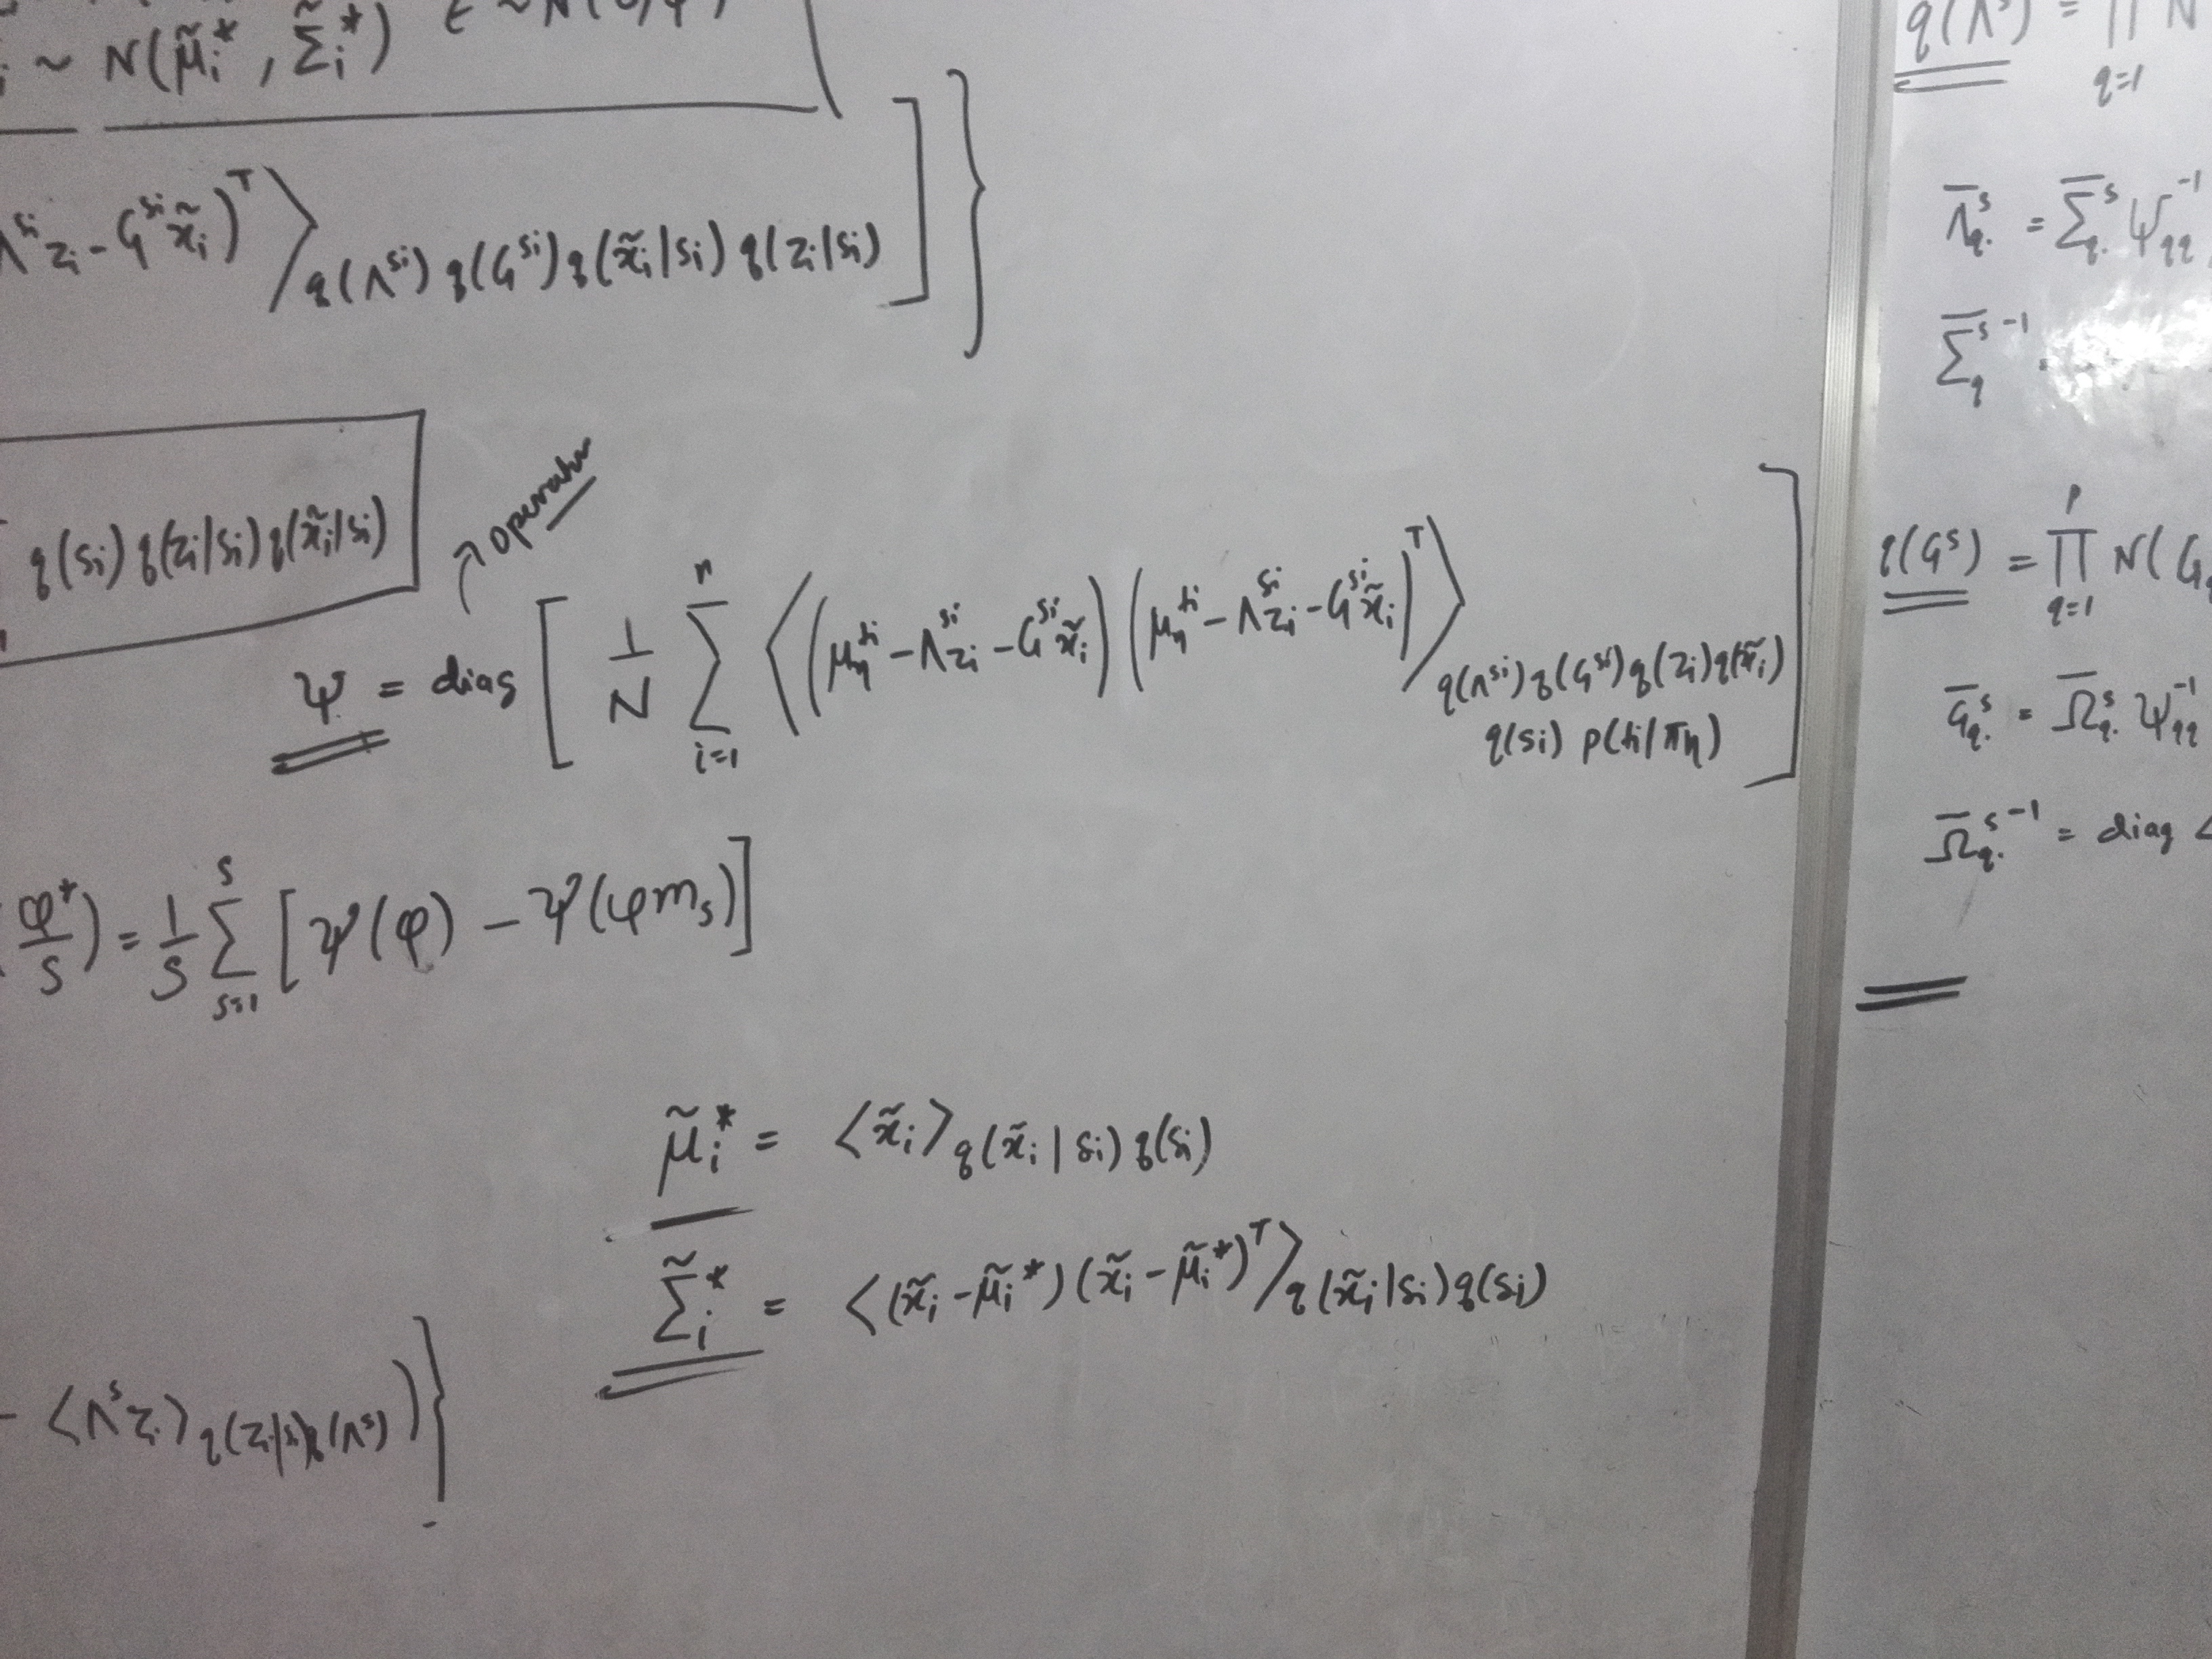 i ~ N(μ̃i*, Σ̃i*) ε ~ N(0, Ψ)
Λ^si zi - G^si x̃i)^T⟩ q(Λ^si) q(G^si) q(x̃i|si) q(zi|si) ] }
q(si) q(zi|si) q(x̃i|si)
operator
Ψ = diag [ 1/N Σ_{i=1}^{n} ⟨(μη^ti - Λ^si zi - G^si x̃i)(μη^ti - Λ^si zi - G^si x̃i)^T⟩ q(Λ^si) q(G^si) q(zi) q(x̃i)
q(si) p(ti|πη) ]
φ*/S) = 1/S Σ_{s=1}^{S} [ψ(φ) - ψ(φ m_s)]
μ̃i* = ⟨x̃i⟩ q(x̃i|si) q(si)
Σ̃i* = ⟨(x̃i - μ̃i*)(x̃i - μ̃i*)^T⟩ q(x̃i|si) q(si)
- ⟨Λ^s zi⟩ q(zi|si) q(Λ^s) ) }
q(Λ^s) = ∏_{q=1} N
Λ̄^s_q. = Σ̄^s_q. Ψ^{-1}_qq
Σ̄_q^{s -1} =
q(G^s) = ∏_{q=1}^{p} N(G
Ḡ^s_q. = Ω̄^s_q. Ψ^{-1}_qq
Ω̄_q.^{s -1} = diag <